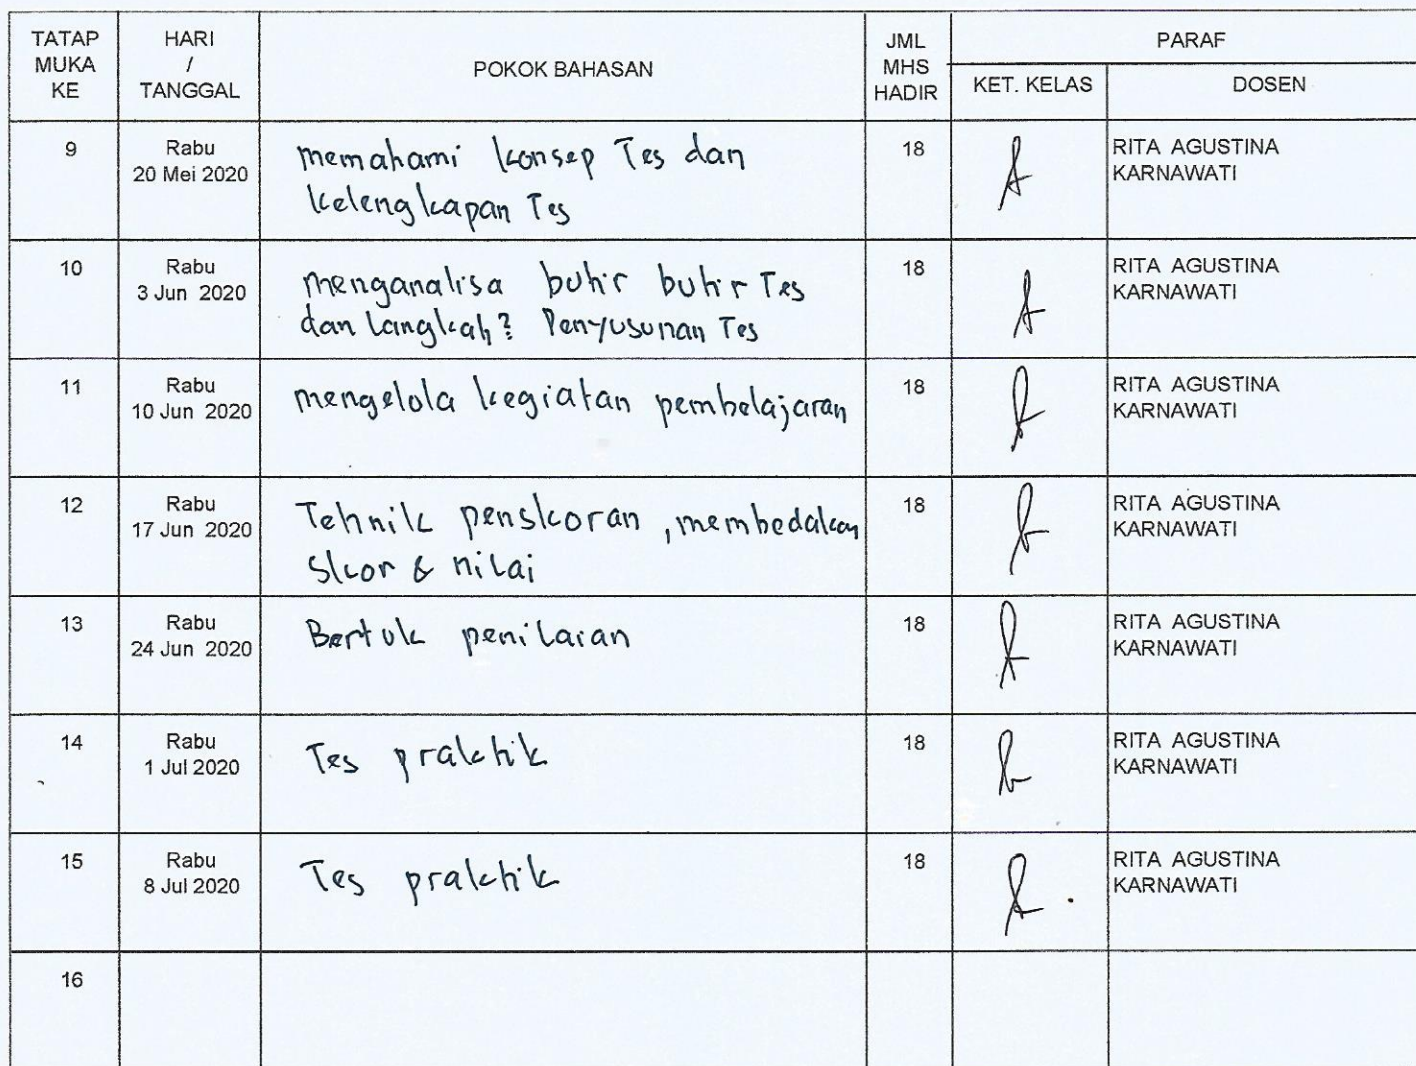 TATAP MUKA KE
HARI / TANGGAL
POKOK BAHASAN
JML MHS HADIR
PARAF
KET. KELAS
DOSEN
9
Rabu
20 Mei 2020
memahami konsep Tes dan
kelengkapan Tes
18
RITA AGUSTINA
KARNAWATI
10
Rabu
3 Jun 2020
menganalisa butir butir Tes
dan langkah? Penyusunan Tes
18
RITA AGUSTINA
KARNAWATI
11
Rabu
10 Jun 2020
mengelola kegiatan pembelajaran
18
RITA AGUSTINA
KARNAWATI
12
Rabu
17 Jun 2020
Tehnik penskoran, membedakan
Skor & nilai
18
RITA AGUSTINA
KARNAWATI
13
Rabu
24 Jun 2020
Bentuk penilaian
18
RITA AGUSTINA
KARNAWATI
14
Rabu
1 Jul 2020
Tes praktik
18
RITA AGUSTINA
KARNAWATI
15
Rabu
8 Jul 2020
Tes praktik
18
RITA AGUSTINA
KARNAWATI
16